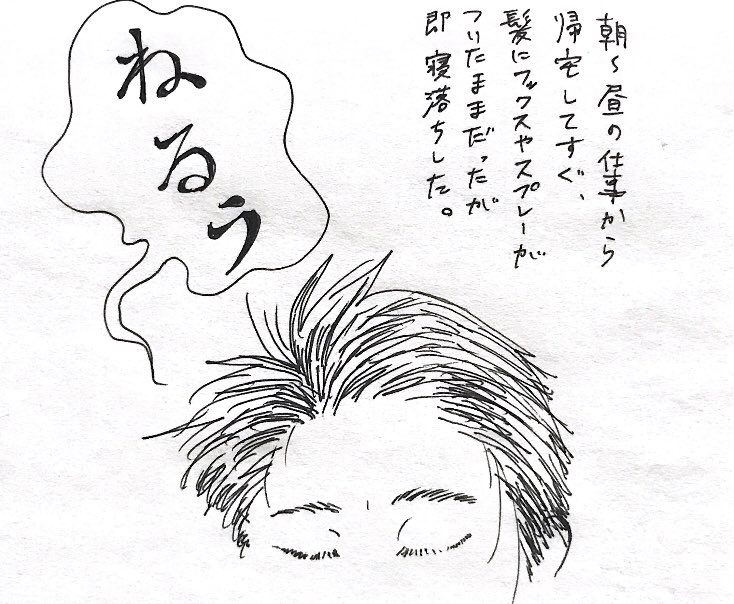 朝〜昼の仕事から
帰宅してすぐ、
髪にワックスやスプレーが
ついたままだったが
即寝落ちした。
ねるぅ